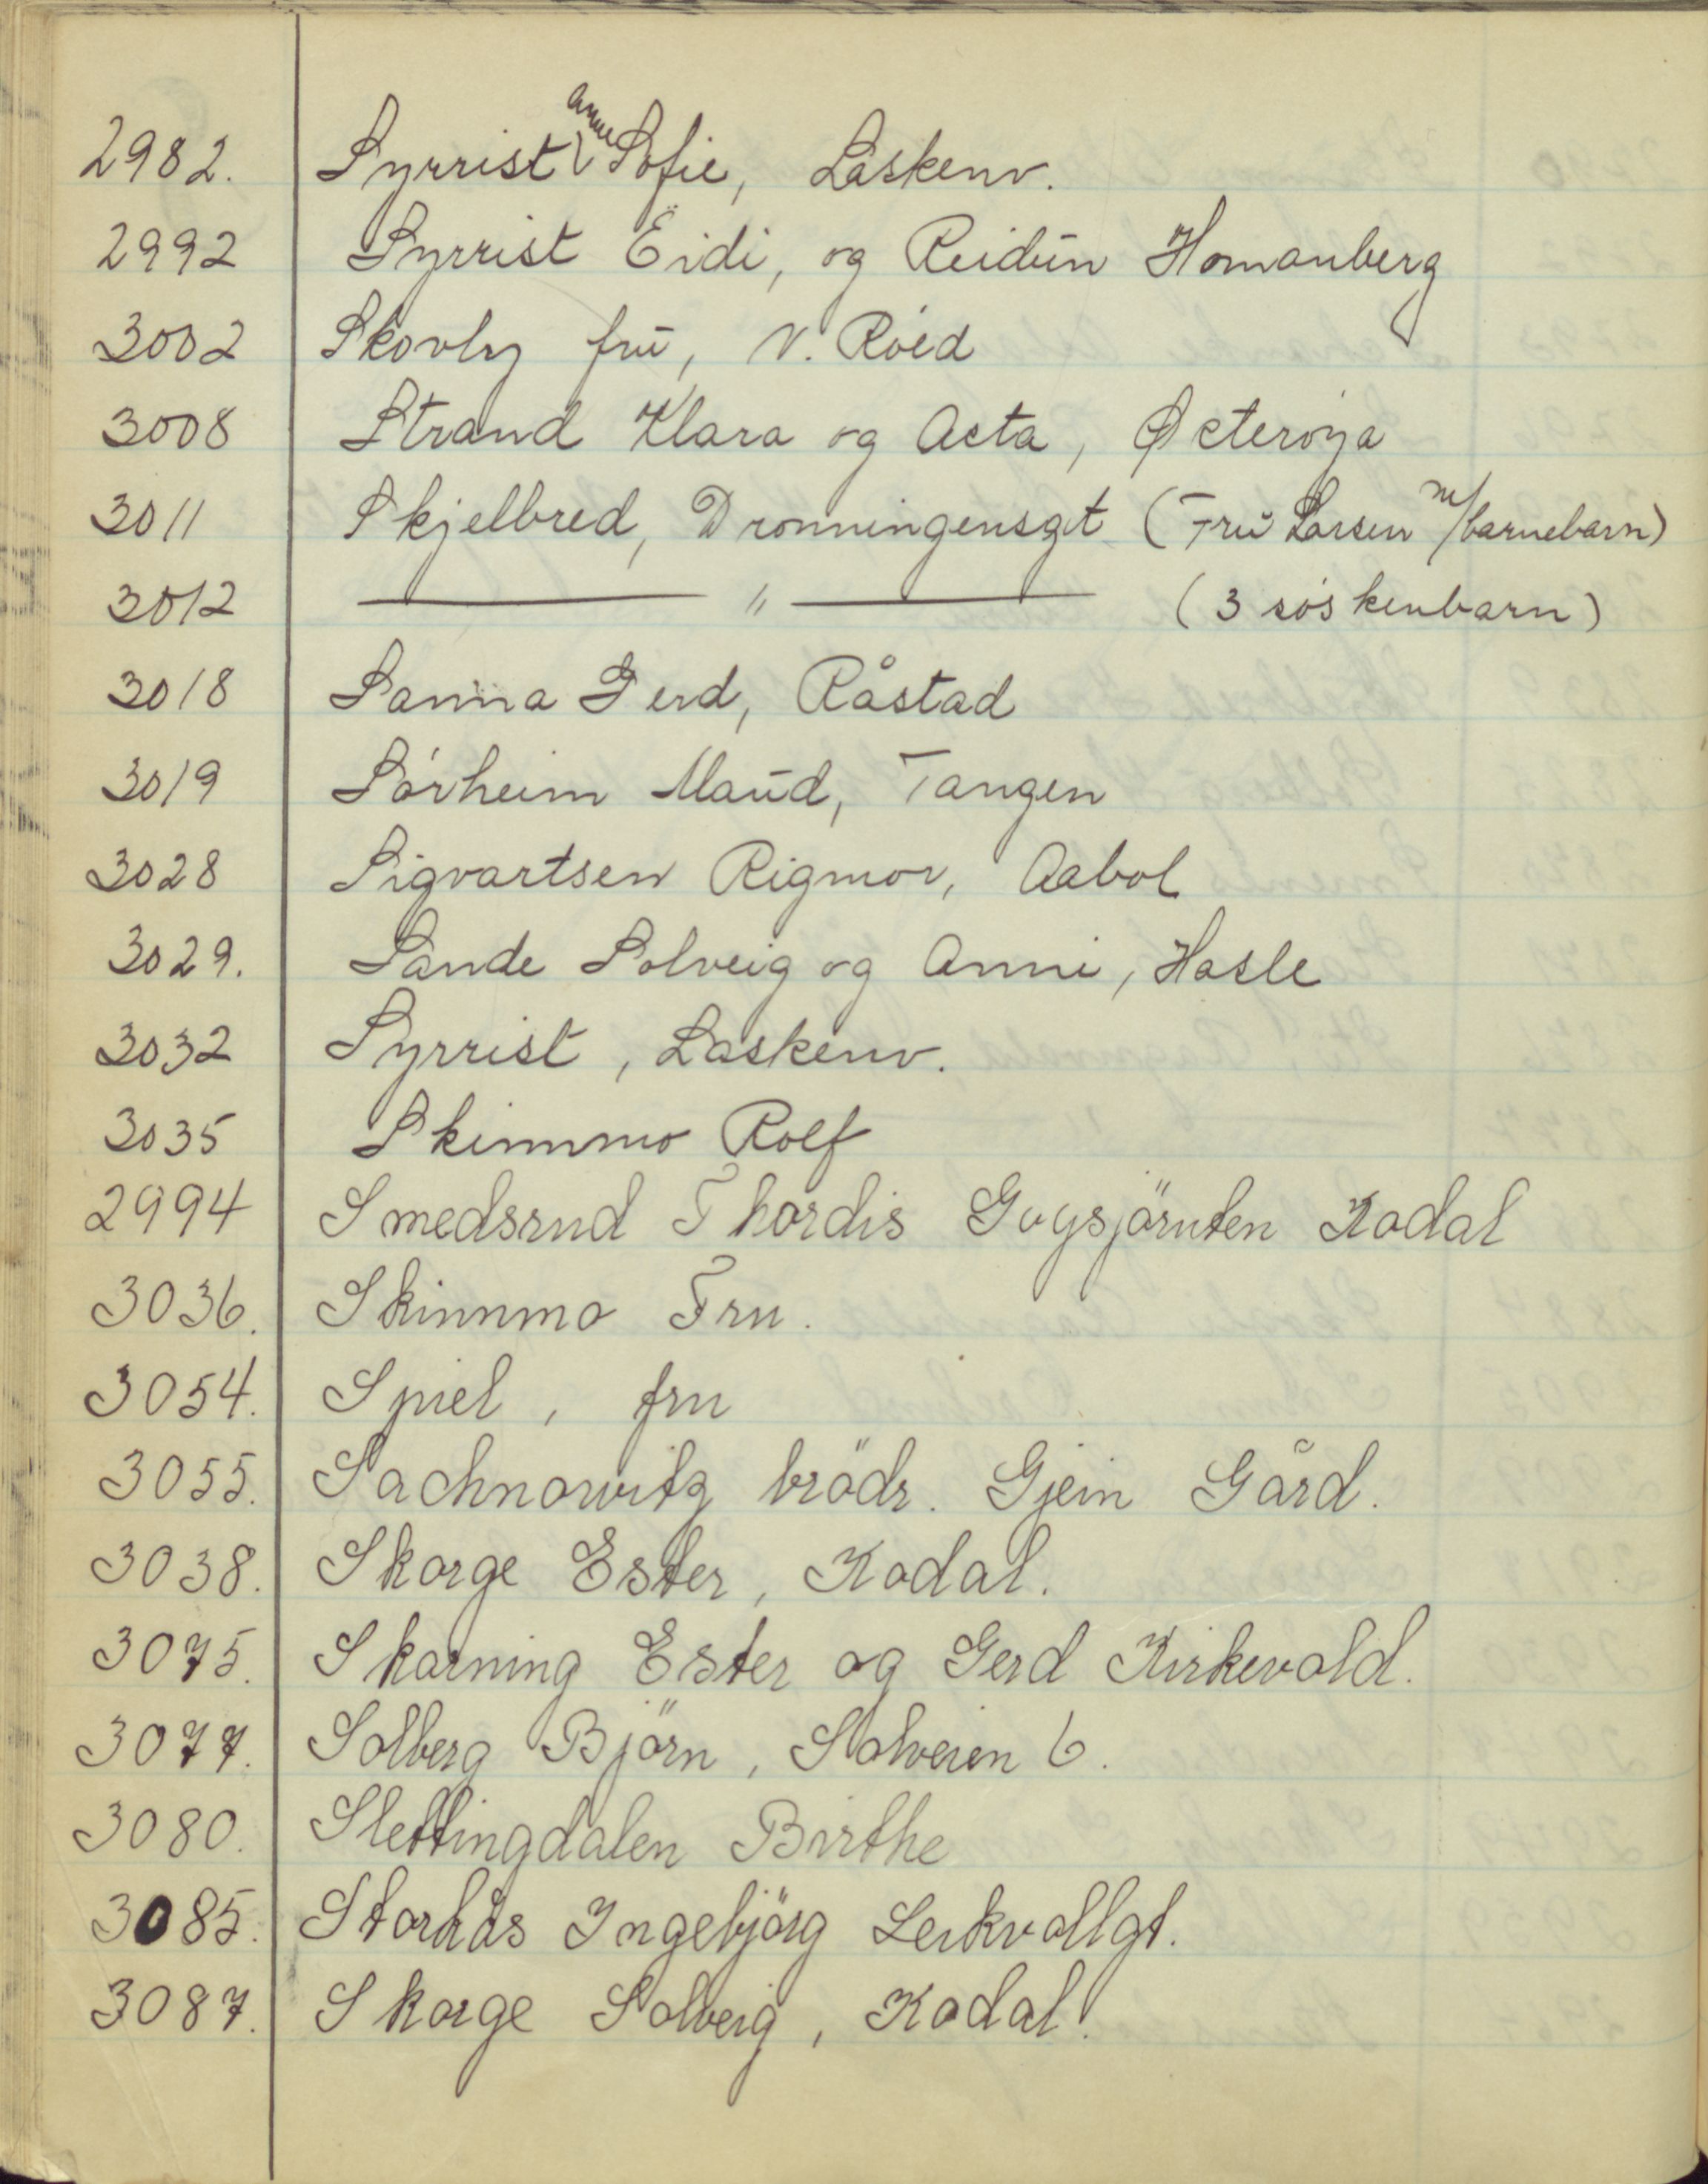 2982. Syrrist Anne Sofie, Låskenv.
2992 Syrrist Eidi, og Reidun Homanberg
3002 Skovly fru, N. Röed
3008 Strand Klara og Asta, Österöya
3011 Skjelbred, Dronningensgt (Fru Larsen m/barnebarn)
3012 ——— " ——— (3 söskenbarn)
3018 Sanna Gerd, Råstad
3019 Sörheim Maud, Tangen
3028 Sigvartsen Rigmor, Aabol
3029. Sande Solveig og Anni, Hasle
3032 Syrrist, Laskenv.
3035 Skinnmo Rolf
2994 Smedsrud Thordis Kodal
3036. Skinnmo Fru.
3054. Spiel, fru
3055. Sachnowitz brödr. Gjein Gård.
3038. Skorge Ester, Kodal.
3075. Skorning Ester og Gerd Kirkevold.
3077. Solberg Björn, Solveien 6.
3080. Slettingdalen Birthe
3085. Storhås Ingebjörg Leikvollgt.
3087. Skorge Solveig, Kodal.